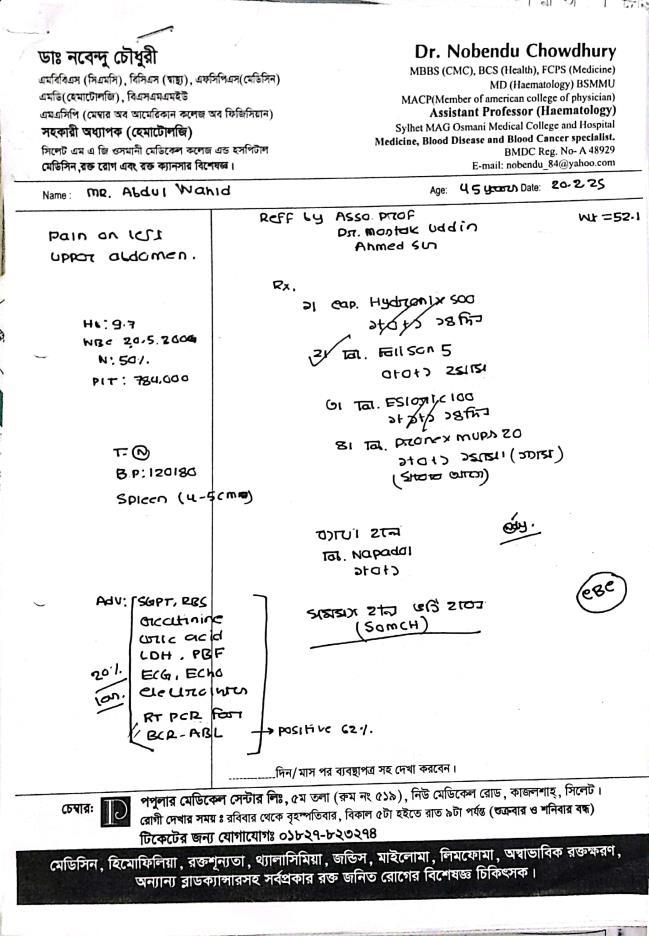 ডাঃ নবেন্দু চৌধুরী
এমবিবিএস (সিএমসি), বিসিএস (স্বাস্থ্য), এফসিপিএস(মেডিসিন)
এমডি(হেমাটোলজি), বিএসএমএমইউ
এমএসিপি (মেম্বার অব আমেরিকান কলেজ অব ফিজিসিয়ান)
সহকারী অধ্যাপক (হেমাটোলজি)
সিলেট এম এ জি ওসমানী মেডিকেল কলেজ এন্ড হসপিটাল
মেডিসিন,রক্ত রোগ এবং রক্ত ক্যানসার বিশেষজ্ঞ।
Dr. Nobendu Chowdhury
MBBS (CMC), BCS (Health), FCPS (Medicine)
MD (Haematology) BSMMU
MACP(Member of american college of physician)
Assistant Professor (Haematology)
Sylhet MAG Osmani Medical College and Hospital
Medicine, Blood Disease and Blood Cancer specialist.
BMDC Reg. No- A 48929
E-mail: nobendu_84@yahoo.com
Name : MR. Abdul Wahid Age: 45 years Date: 20.2.25
Pain on left
upper abdomen.
Hb: 9.7
N: 50%
PLT: 784,000
T- N
B.P: 120180
Spleen (4-5cm)
Adv: SGPT, RBS
creatinine
uric acid
LDH, PBF
ECG, Echo
electrolytes
RT PCR
BCR-ABL → positive 62%.
20%
Reff by Asso. Prof
Dr. Mostak Uddin
Ahmed Sir
Wt = 52.1
Rx,
১। Cap. Hydronix 500
১+০+১
২। ট্যাব. Folison 5
০+০+১ ২মাস
৩।
১+০+১
৪। ট্যাব. Pronex MUPS 20
১+০+১
ব্যথা হলে
ট্যাব. Napadol
১+০+১
(SOMCH)
CBC
দিন/মাস পর ব্যবস্থাপত্র সহ দেখা করবেন।
চেম্বার: পপুলার মেডিকেল সেন্টার লিঃ, ৫ম তলা (রুম নং ৫১৯), নিউ মেডিকেল রোড, কাজলশাহ্, সিলেট।
রোগী দেখার সময় : রবিবার থেকে বৃহস্পতিবার, বিকাল ৫টা হইতে রাত ৯টা পর্যন্ত (শুক্রবার ও শনিবার বন্ধ)
টিকেটের জন্য যোগাযোগঃ ০১৮২৭-৮২৩২৭৪
মেডিসিন, হিমোফিলিয়া, রক্তশূন্যতা, থ্যালাসিমিয়া, জন্ডিস, মাইলোমা, লিমফোমা, অস্বাভাবিক রক্তক্ষরণ,
অন্যান্য ব্লাডক্যান্সারসহ সর্বপ্রকার রক্ত জনিত রোগের বিশেষজ্ঞ চিকিৎসক।